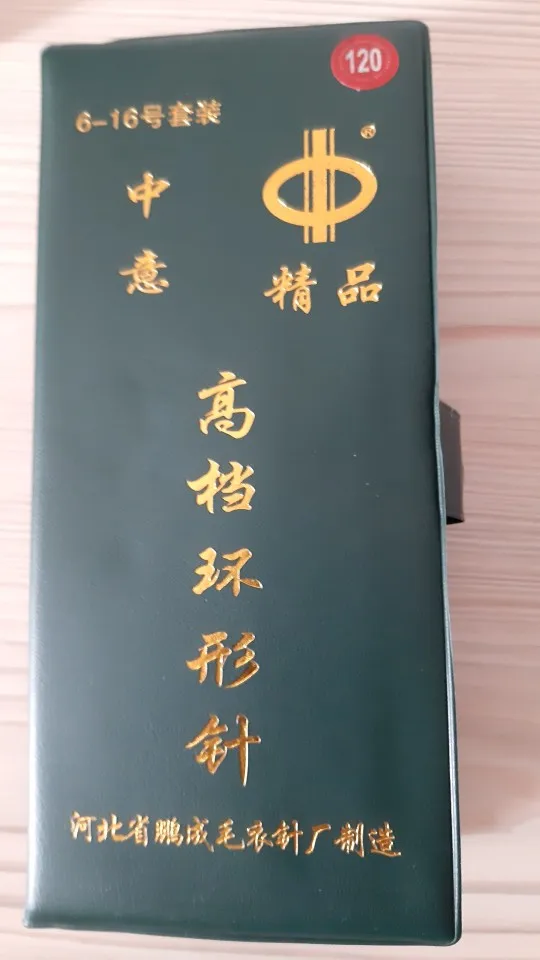 120
6-16号套装
®
中意
精品
高档环形针
河北省鹏成毛衣针厂制造